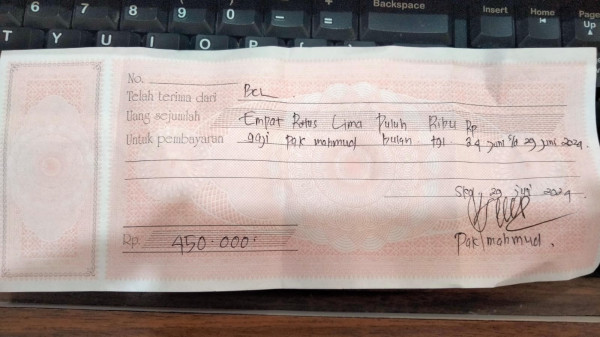 6 7 8 9 0 - = Backspace Insert Home Page Up
T Y U I O P
No.
Telah terima dari BCL
Uang sejumlah Empat Ratus Lima Puluh Ribu Rp.
Untuk pembayaran gaji pak mahmud bulan tgl 24 juni s/d 29 juni 2024.
29 juni 2024
Rp. 450.000.
Pak mahmud.